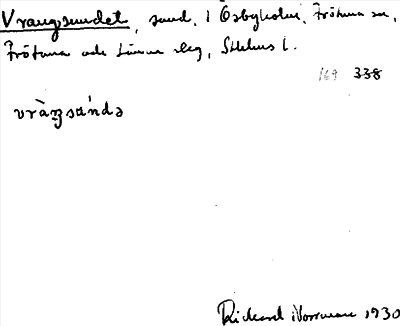 Vrangsundet, sund, i Österbyholm, Frötuna sn,
Frötuna och Länna slg, Sthlms l.
169 338
vràŋsún̄də
Rickard Norrman 1930